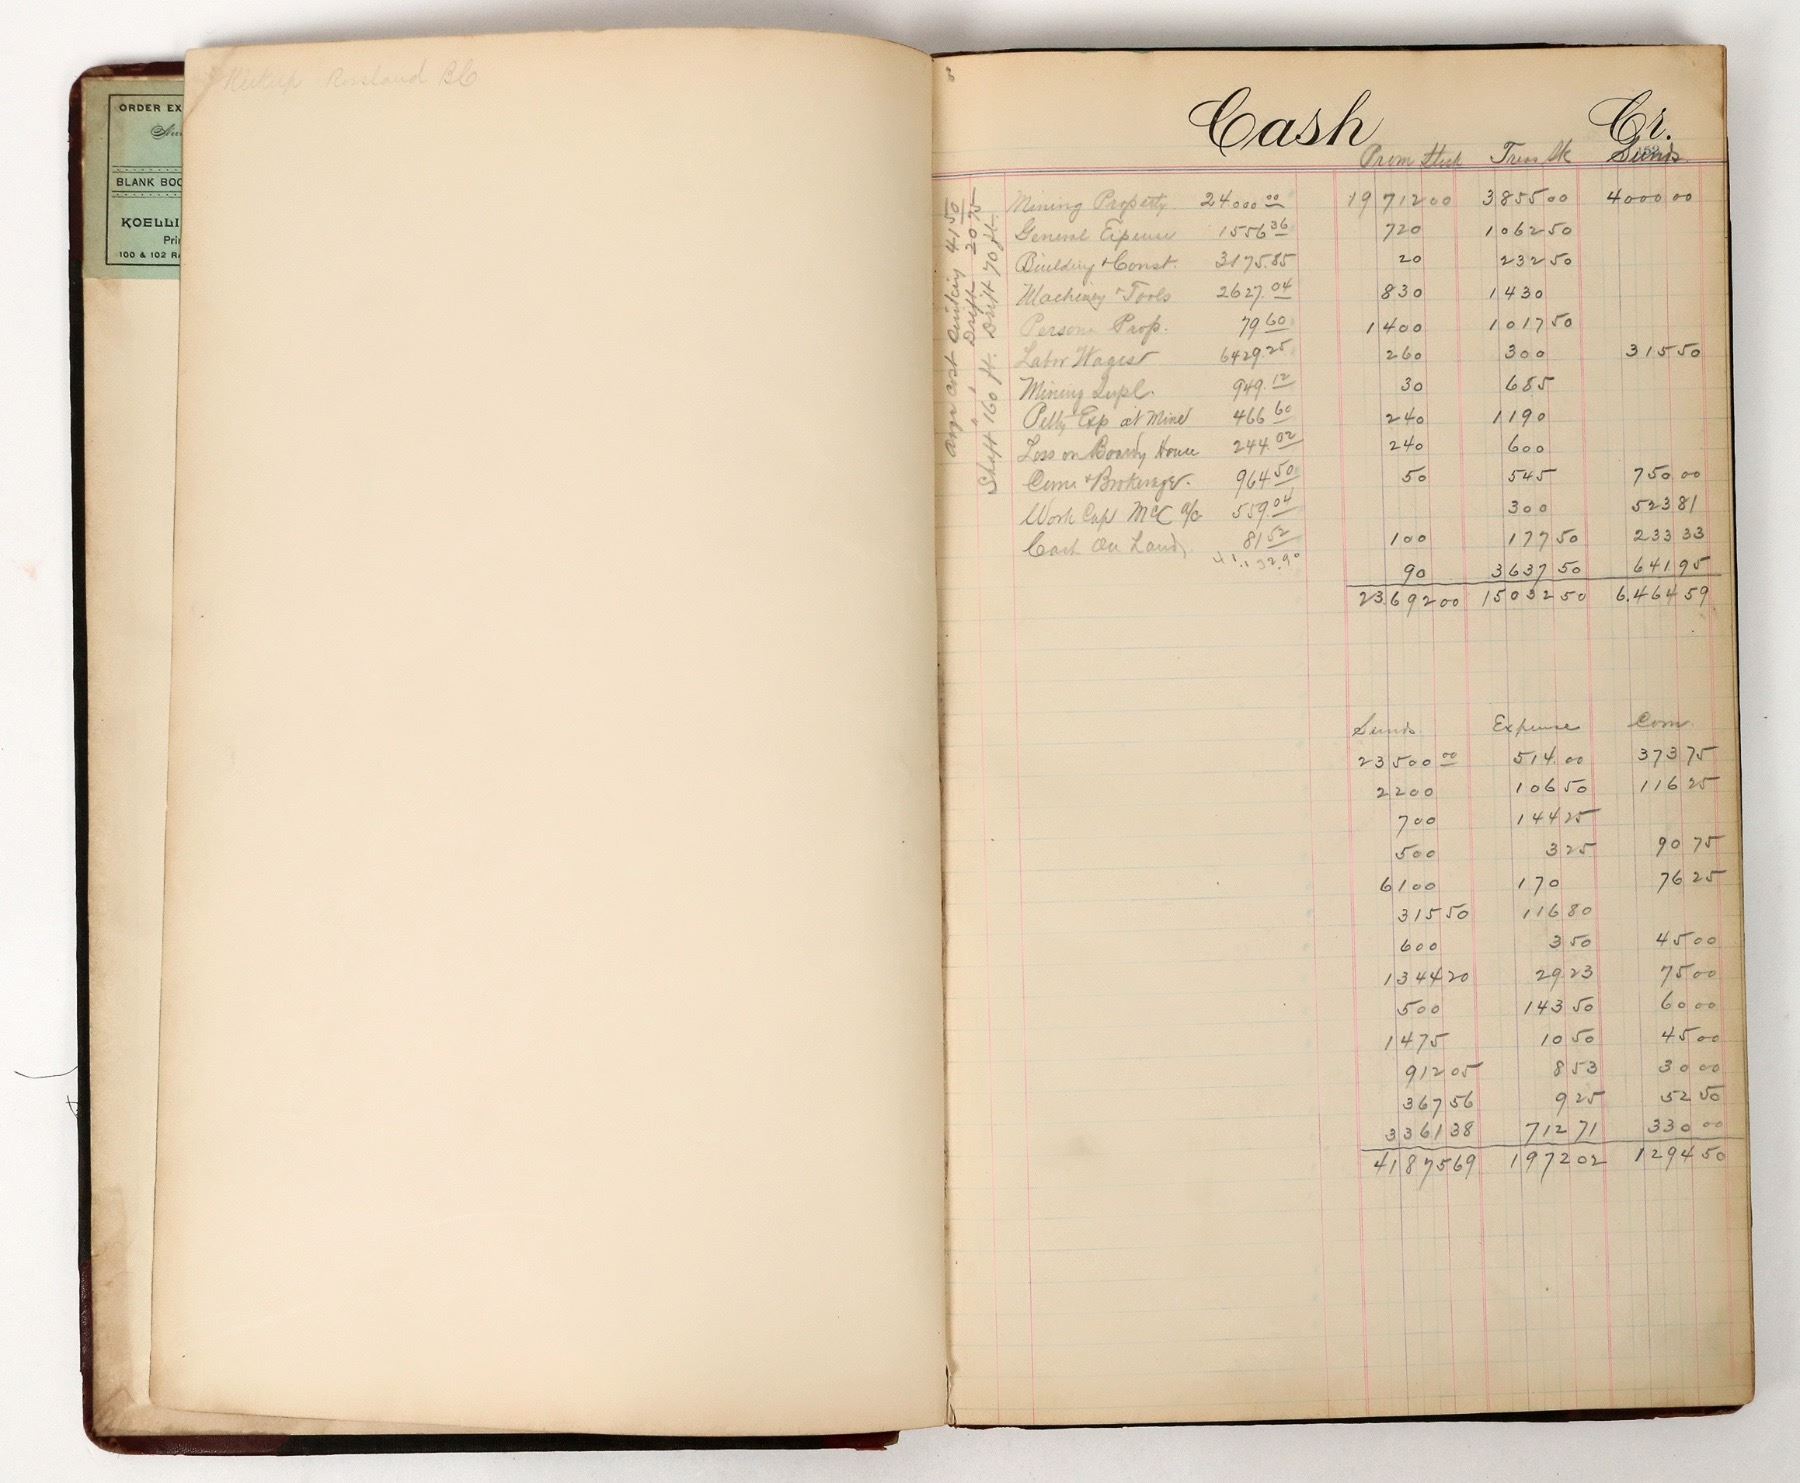 Rossland BC
ORDER EX
BLANK BOO
KOELLI
Prin
100 & 102 R
Cash Cr.
Prom Stock Treas Stk Sunds
152
Avge Cost Sinking 41 50
" " Drift 20 75
Shaft 160 ft. Drift 70 ft.
Mining Property 24000 00 19712 00 3855 00 4000 00
General Expense 1556 36 720 1062 50
Building + Const. 3175.85 20 232 50
Machinery + Tools 2627.04 830 1430
Persona Prop. 79 60 1400 1017 50
Labor Wages 6429.25 260 300 315 50
Mining Supl. 949.12 30 685
Petty Exp at Mine 466 60 240 1190
Loss on Boardg House 244.02 240 600
Comi + Brokerage. 964 50 50 545 750 00
Work Caps McC a/c 559.04 300 523 81
Cash On Hand, 81 52 100 177 50 233 33
41,132.90 90 3637 50 641 95
23692 00 15032 50 6.464 59
Sunds Expense Com
23500 00 514.00 373 75
2200 106 50 116 25
700 144 25
500 3 25 90 75
6100 170 76 25
315 50 116 80
600 3 50 45 00
1344 20 29 23 75 00
500 143 50 60 00
1475 10 50 45 00
912 05 8 53 30 00
367 56 9 25 52 50
3361 38 712 71 330 00
41875 69 1972 02 1294 50